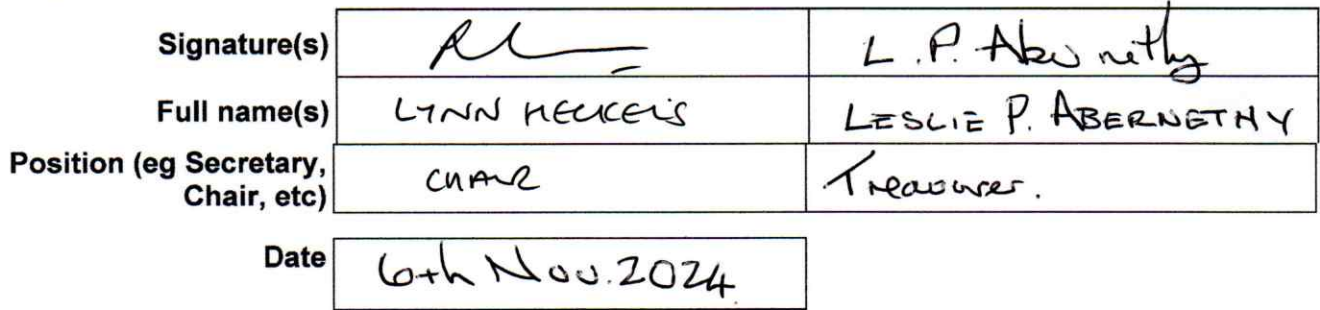 Signature(s) L.P. Abernethy
Full name(s) LYNN HECKELS LESLIE P. ABERNETHY
Position (eg Secretary,
Chair, etc) CHAIR Treasurer.
Date 6th Nov. 2024